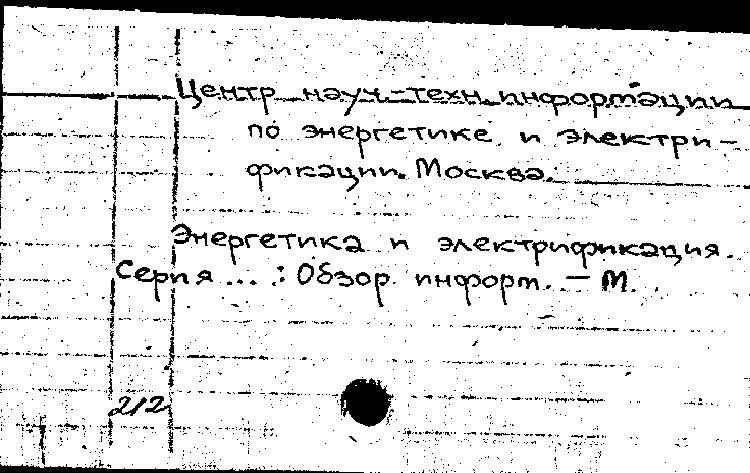 Центр науч.-техн. информации
по энергетике и электри-
фикации. Москва.
Энергетика и электрификация.
Серия ... : Обзор. информ. - М.
212